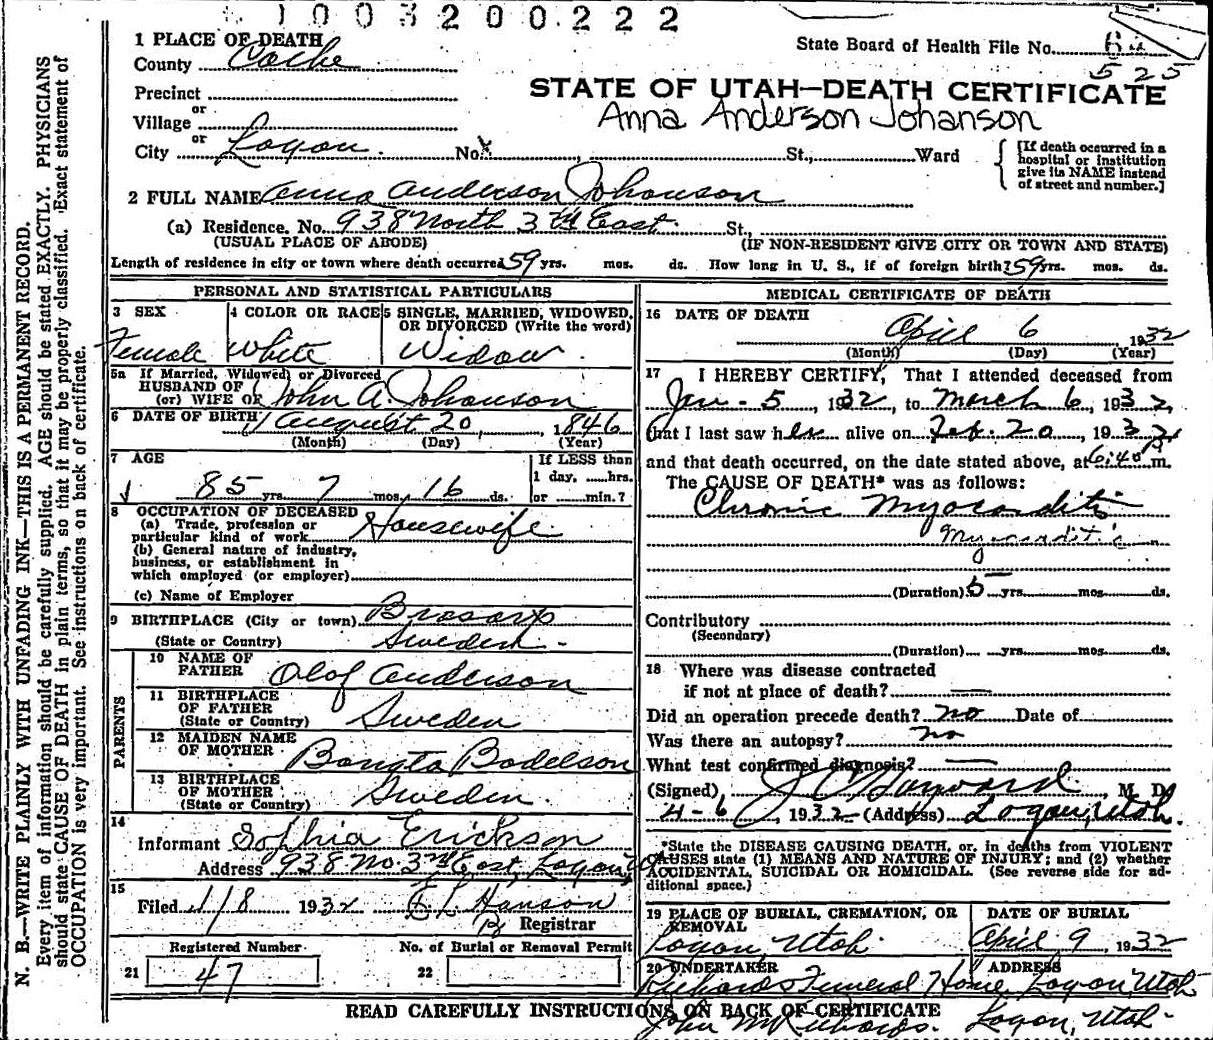 1003200222
1 PLACE OF DEATH
County Cache
State Board of Health File No.
525
Precinct
or
STATE OF UTAH—DEATH CERTIFICATE
Village
Anna Anderson Johanson
or
City Logan. No. X St., Ward
[If death occurred in a
hospital or institution
give its NAME instead
of street and number.]
2 FULL NAME Anna Anderson Johanson
(a) Residence. No. 938 North 3rd East. St.,
(USUAL PLACE OF ABODE) (IF NON-RESIDENT GIVE CITY OR TOWN AND STATE)
Length of residence in city or town where death occurred 59 yrs. mos. ds. How long in U. S., if of foreign birth? 59 yrs. mos. ds.
PERSONAL AND STATISTICAL PARTICULARS
3 SEX 4 COLOR OR RACE 5 SINGLE, MARRIED, WIDOWED,
OR DIVORCED (Write the word)
Female White Widow.
5a If Married, Widowed, or Divorced
HUSBAND OF
(or) WIFE OF John A. Johanson
6 DATE OF BIRTH August 20, 1846
(Month) (Day) (Year)
7 AGE If LESS than
1 day, ......hrs.
85 yrs. 7 mos. 16 ds. or ......min.?
8 OCCUPATION OF DECEASED
(a) Trade, profession or
particular kind of work Housewife
(b) General nature of industry,
business, or establishment in
which employed (or employer)
(c) Name of Employer
9 BIRTHPLACE (City or town) Brosarp
(State or Country) Sweden.
PARENTS
10 NAME OF
FATHER Olof Anderson
11 BIRTHPLACE
OF FATHER
(State or Country) Sweden
12 MAIDEN NAME
OF MOTHER Bengta Bodelson
13 BIRTHPLACE
OF MOTHER
(State or Country) Sweden.
14
Informant Sophia Erickson
Address 938 No. 3rd East, Logan,
15
Filed 1/8 1932 E L Hanson
Registrar
Registered Number No. of Burial or Removal Permit
21 47 22
MEDICAL CERTIFICATE OF DEATH
16 DATE OF DEATH
April 6 1932
(Month) (Day) (Year)
17 I HEREBY CERTIFY, That I attended deceased from
Jan - 5, 1932, to March 6, 1932,
that I last saw her alive on Feb. 20, 1932
and that death occurred, on the date stated above, at 6:40 P m.
The CAUSE OF DEATH* was as follows:
Chronic Myocarditis
Myocarditis
(Duration) 5 yrs. mos. ds.
Contributory
(Secondary)
(Duration) yrs. mos. ds.
18 Where was disease contracted
if not at place of death? —
Did an operation precede death? no Date of
Was there an autopsy? no
What test confirmed diagnosis? —
(Signed) J C Hayward, M. D.
4-6, 1932 (Address) Logan, Utah.
*State the DISEASE CAUSING DEATH, or, in deaths from VIOLENT
CAUSES state (1) MEANS AND NATURE OF INJURY; and (2) whether
ACCIDENTAL, SUICIDAL OR HOMICIDAL. (See reverse side for ad-
ditional space.)
19 PLACE OF BURIAL, CREMATION, OR DATE OF BURIAL
REMOVAL
Logan, Utah. April 9, 1932
20 UNDERTAKER ADDRESS
Richards Funeral Home, Logan, Utah
READ CAREFULLY INSTRUCTIONS ON BACK OF CERTIFICATE
John M Richards. Logan, Utah.
N. B.—WRITE PLAINLY WITH UNFADING INK—THIS IS A PERMANENT RECORD.
Every item of information should be carefully supplied. AGE should be stated EXACTLY. PHYSICIANS
should state CAUSE OF DEATH in plain terms, so that it may be properly classified. Exact statement of
OCCUPATION is very important. See instructions on back of certificate.